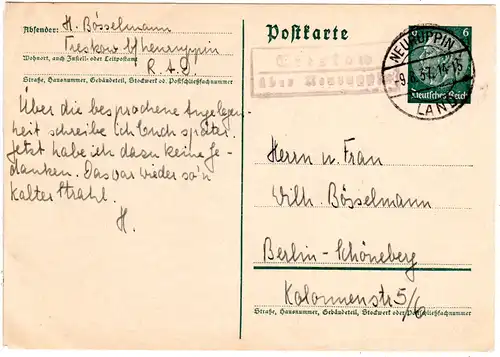 Absender: H. Bösselmann
Treskow b/Neuruppin
Wohnort, auch Zustell- oder Leitpostamt
R. A. D.
Straße, Hausnummer, Gebäudeteil, Stockwerk od. Postschließfachnummer
Über die besprochene Angelegen-
heit schreibe ich Euch später.
Jetzt habe ich dazu keine Ge-
danken. Das war wieder so'n
kalter Strahl.
H.
Postkarte
Treskow
über Neuruppin
NEURUPPIN
-9.6.37. 14-15
LAND
6
Deutsches Reich
Herrn u. Frau
Wilh. Bösselmann
Berlin-Schöneberg
Kolonnenstr 5/6
Straße, Hausnummer, Gebäudeteil, Stockwerk oder Postschließfachnummer